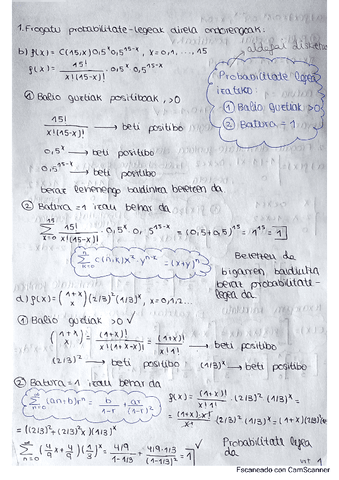 1. Frogatu probabilitate-legeak direla ondorengoak:
aldagai diskretu
b) f(x) = C(15,x) 0,5^x 0,5^15-x , x=0,1, ..., 15
f(x) = 15! / x!(15-x)! · 0,5^x 0,5^15-x
Probabilitate legea
izateko:
① Balio guztiak >0
② Batura = 1
① Balio guztiak positiboak, >0
15! / x!(15-x)! → beti positibo
0,5^x → beti positibo
0,5^15-x → beti positibo
beraz lehenengo baldintza betetzen da
② Batura = 1 izan behar da
15 Σ x=0 15! / x!(15-x)! · 0,5^x · 0,5^15-x = (0,5+0,5)^15 = 1^15 = 1
n Σ x=0 C(n,x) x^x · y^n-x = (x+y)^n
Betetzen du
bigarren baldintza
beraz probabilitate-
legea da
d) f(x) = (1+x x) (2/3)^2 (1/3)^x , x=0,1,2...
① Balio guztiak >0 ✓
(1+x x) = (1+x)! / x!(1+x-x)! = (1+x)! / x! 1! → beti positibo
(2/3)^2 → beti positibo (1/3)^x → beti positibo
② Batura = 1 izan behar da
∞ Σ n=0 (an+b) r^n = b / 1-r + ar / (1-r)^2
f(x) = (1+x)! / x! 1! · (2/3)^2 (1/3)^x =
= (2/3)^2 + (2/3)^2 x) (1/3)^x
∞ Σ x=0 (4/9 x + 4/9) (1/3)^x = 4/9 / 1-1/3 + 4/9·1/3 / (1-1/3)^2 = 1 ✓
Probabilitate legea
da
Escaneado con CamScanner